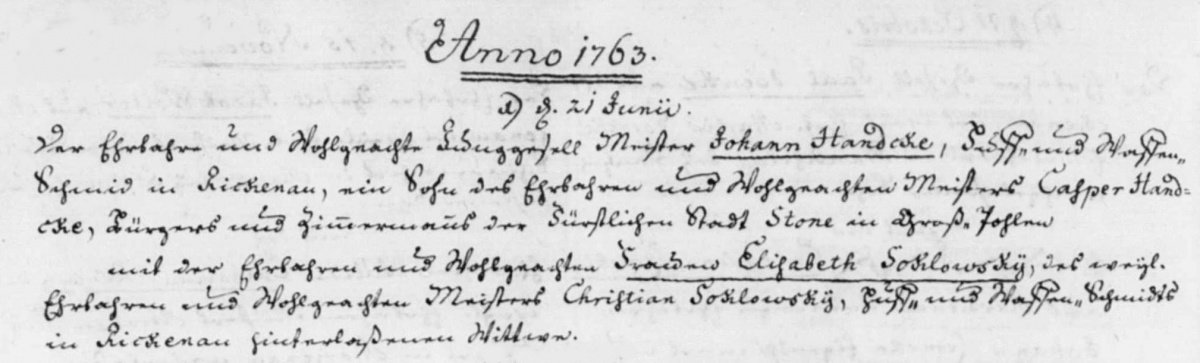 Anno 1763.
1) d. 21 Junii.
Der Ehrbahre und Wohlgeachte Junggesell Meister Johann Handcke, Huff- und Waffen-
Schmid in Rickenau, ein Sohn des Ehrbahren und Wohlgeachten Meisters Casper Hand-
cke, Bürgers und Zimmermanns der Fürstlichen Stadt Stone in Groß-Pohlen
mit der Ehrbahren und Wohlgeachten Frauen Elisabeth Sokilowsky, des weyl.
Ehrbahren und Wohlgeachten Meisters Christian Sokilowsky, Huff- und Waffen-Schmidts
in Rickenau hinterlaßenen Wittwe.